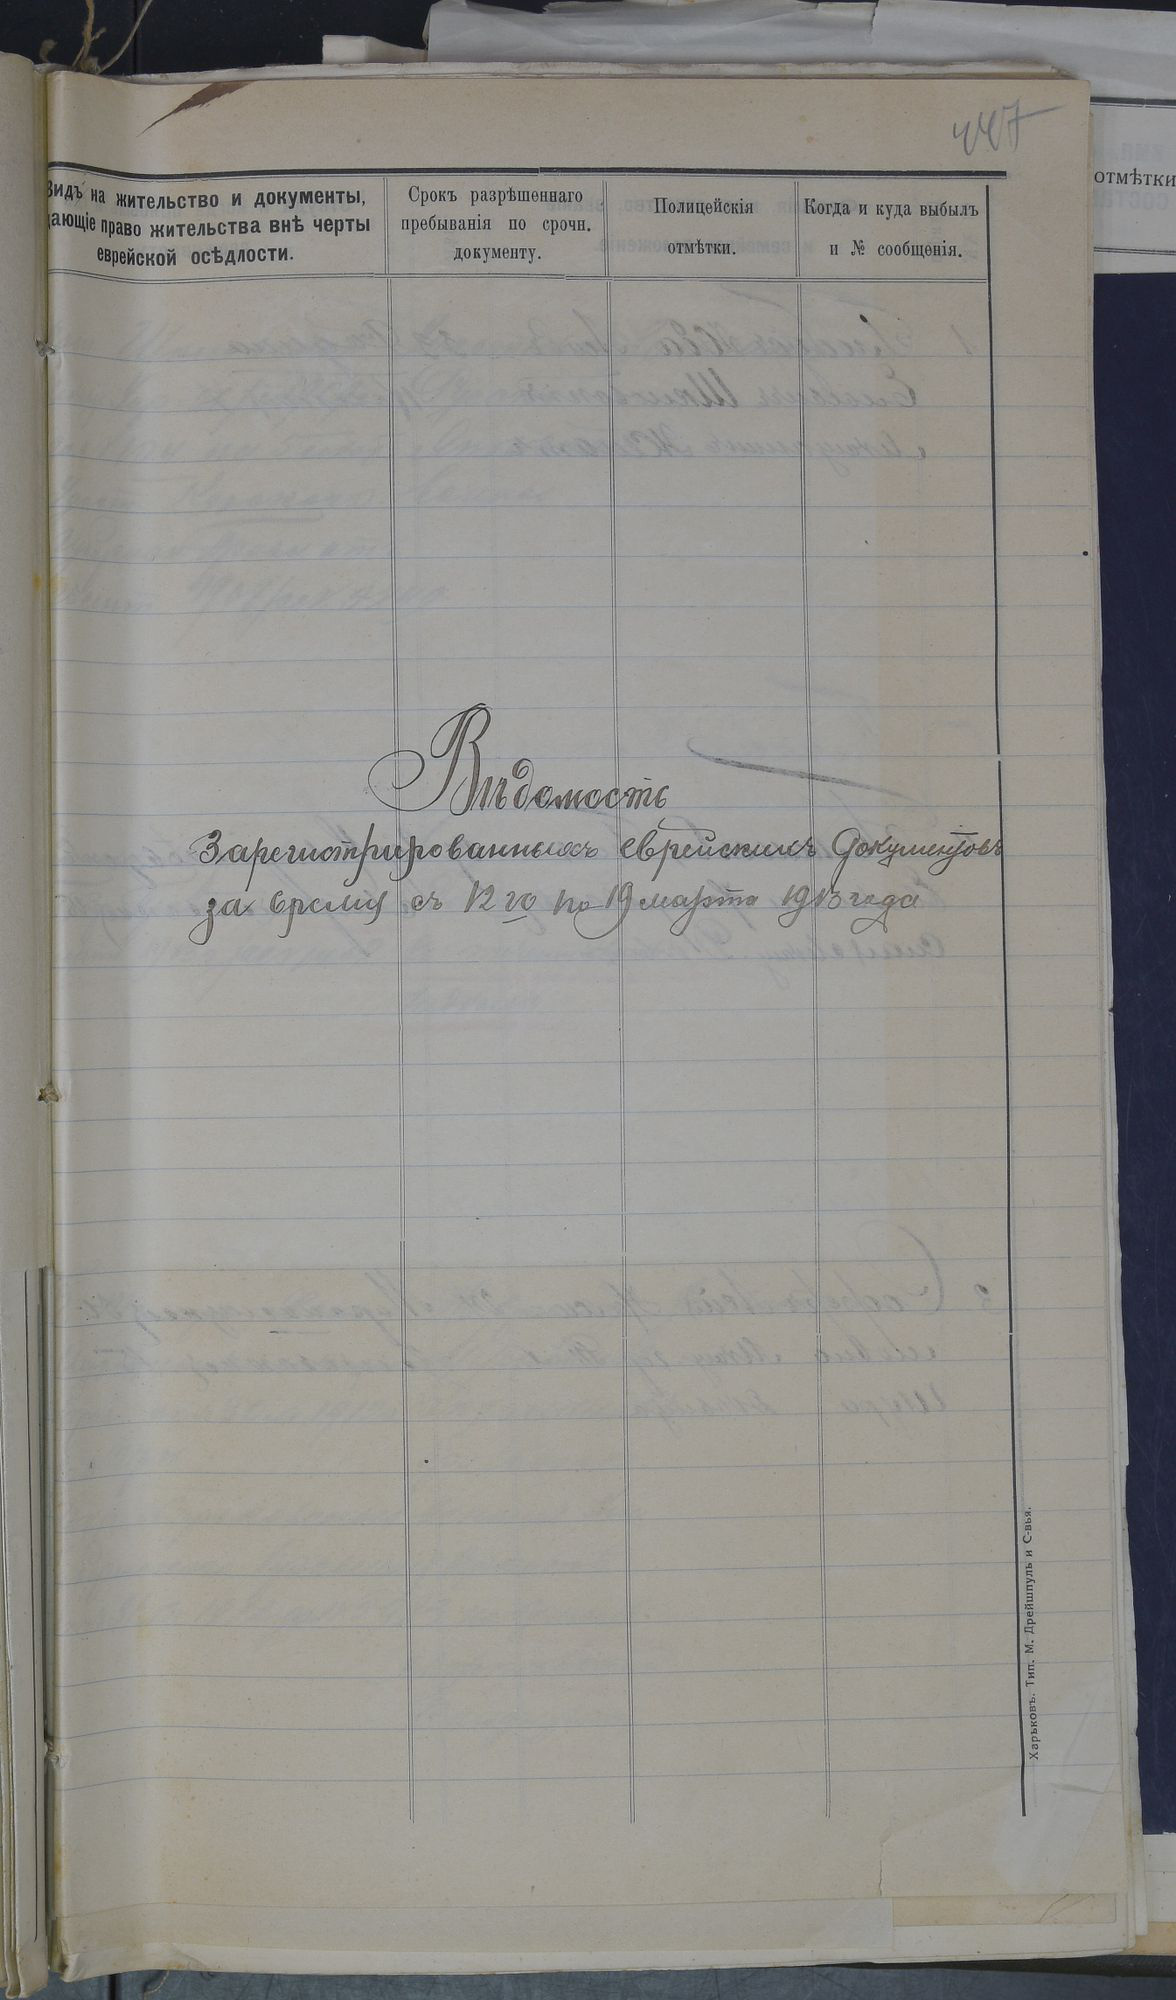 447
Видъ на жительство и документы,
дающіе право жительства внѣ черты
еврейской осѣдлости.
Срокъ разрѣшеннаго
пребыванія по срочн.
документу.
Полицейскія
отмѣтки.
Когда и куда выбылъ
и № сообщенія.
отмѣтки
Вѣдомость
Зарегистрированныхъ еврейскихъ документовъ
за время съ 12 го по 19 марта 1913 года
Харьковъ. Тип. М. Дрейшпуль и С-вья.